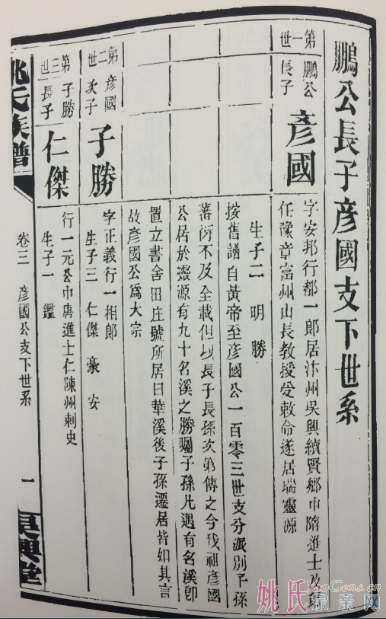 鵬公長子彥國支下世系
第一世
鵬公長子
彥國
字安邦行都一郎居汴州吳興續賢鄉中隋進士
任豫章富州山長教授受敕命遂居瑞靈源
生子二 明 勝
按舊譜自黃帝至彥國公一百零三世支分派別子孫
蕃衍不及全載但以長子長孫次第傳之今我祖彥國
公居於靈源有九十名溪之勝囑子孫凡遇有名溪卽
置立書舍田庄號所居曰華溪後子孫遷居皆如其言
故彥國公爲大宗
第二世
彥國次子
子勝
字正義行一相郎
生子三 仁傑 豪 安
第三世
子勝長子
仁傑
行一元公中唐進士仁陳州刺史
生子一 鑑
姚氏族譜
卷三 彥國公支下世系
一
吳興堂
姚氏宗亲网